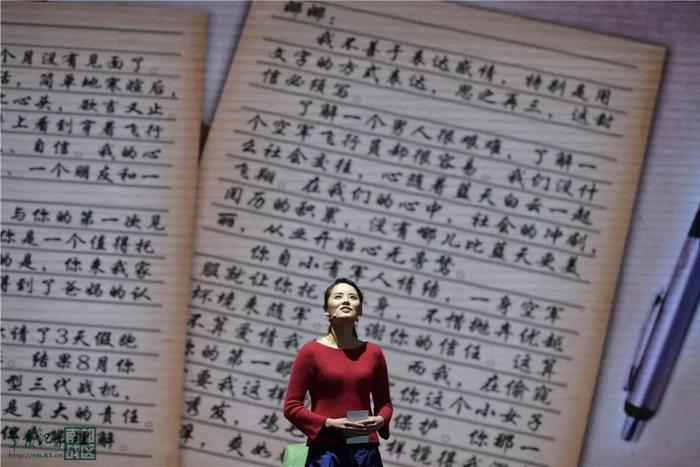 个月没有见面了。
简单地寒暄后，
心头，欲言又止。
上看到穿着飞行
、自信。我的心
、一个朋友和一
与你的第一次见
你是一个值得托
的是，你来我家
得到了爸妈的认
请了3天假跑
。结果8月你
型三代战机，
是重大的责任。
解
我不善于表达感情，特别是用
文字的方式表达，思之再三，这封
信必须写。
了解一个男人很艰难，了解一
个空军飞行员却很容易。我们没什
么社会交往，心随着蓝天白云一起
飞翔。在我们的心中，社会的冲刷，
阅历的积累，没有哪儿比蓝天更美
丽，从业开始心无旁骛。
你自小有军人情结，一身空军
服就让你托 身，不惜抛弃优越
环境来随军 谢你的信任。这算
不算爱情我 而我，在偷窥
你的第一眼 你这个小女子
要我这样 保护。你那一
秀发，鸡
爽 样搅得我
军报记者
http://nb.81.cn